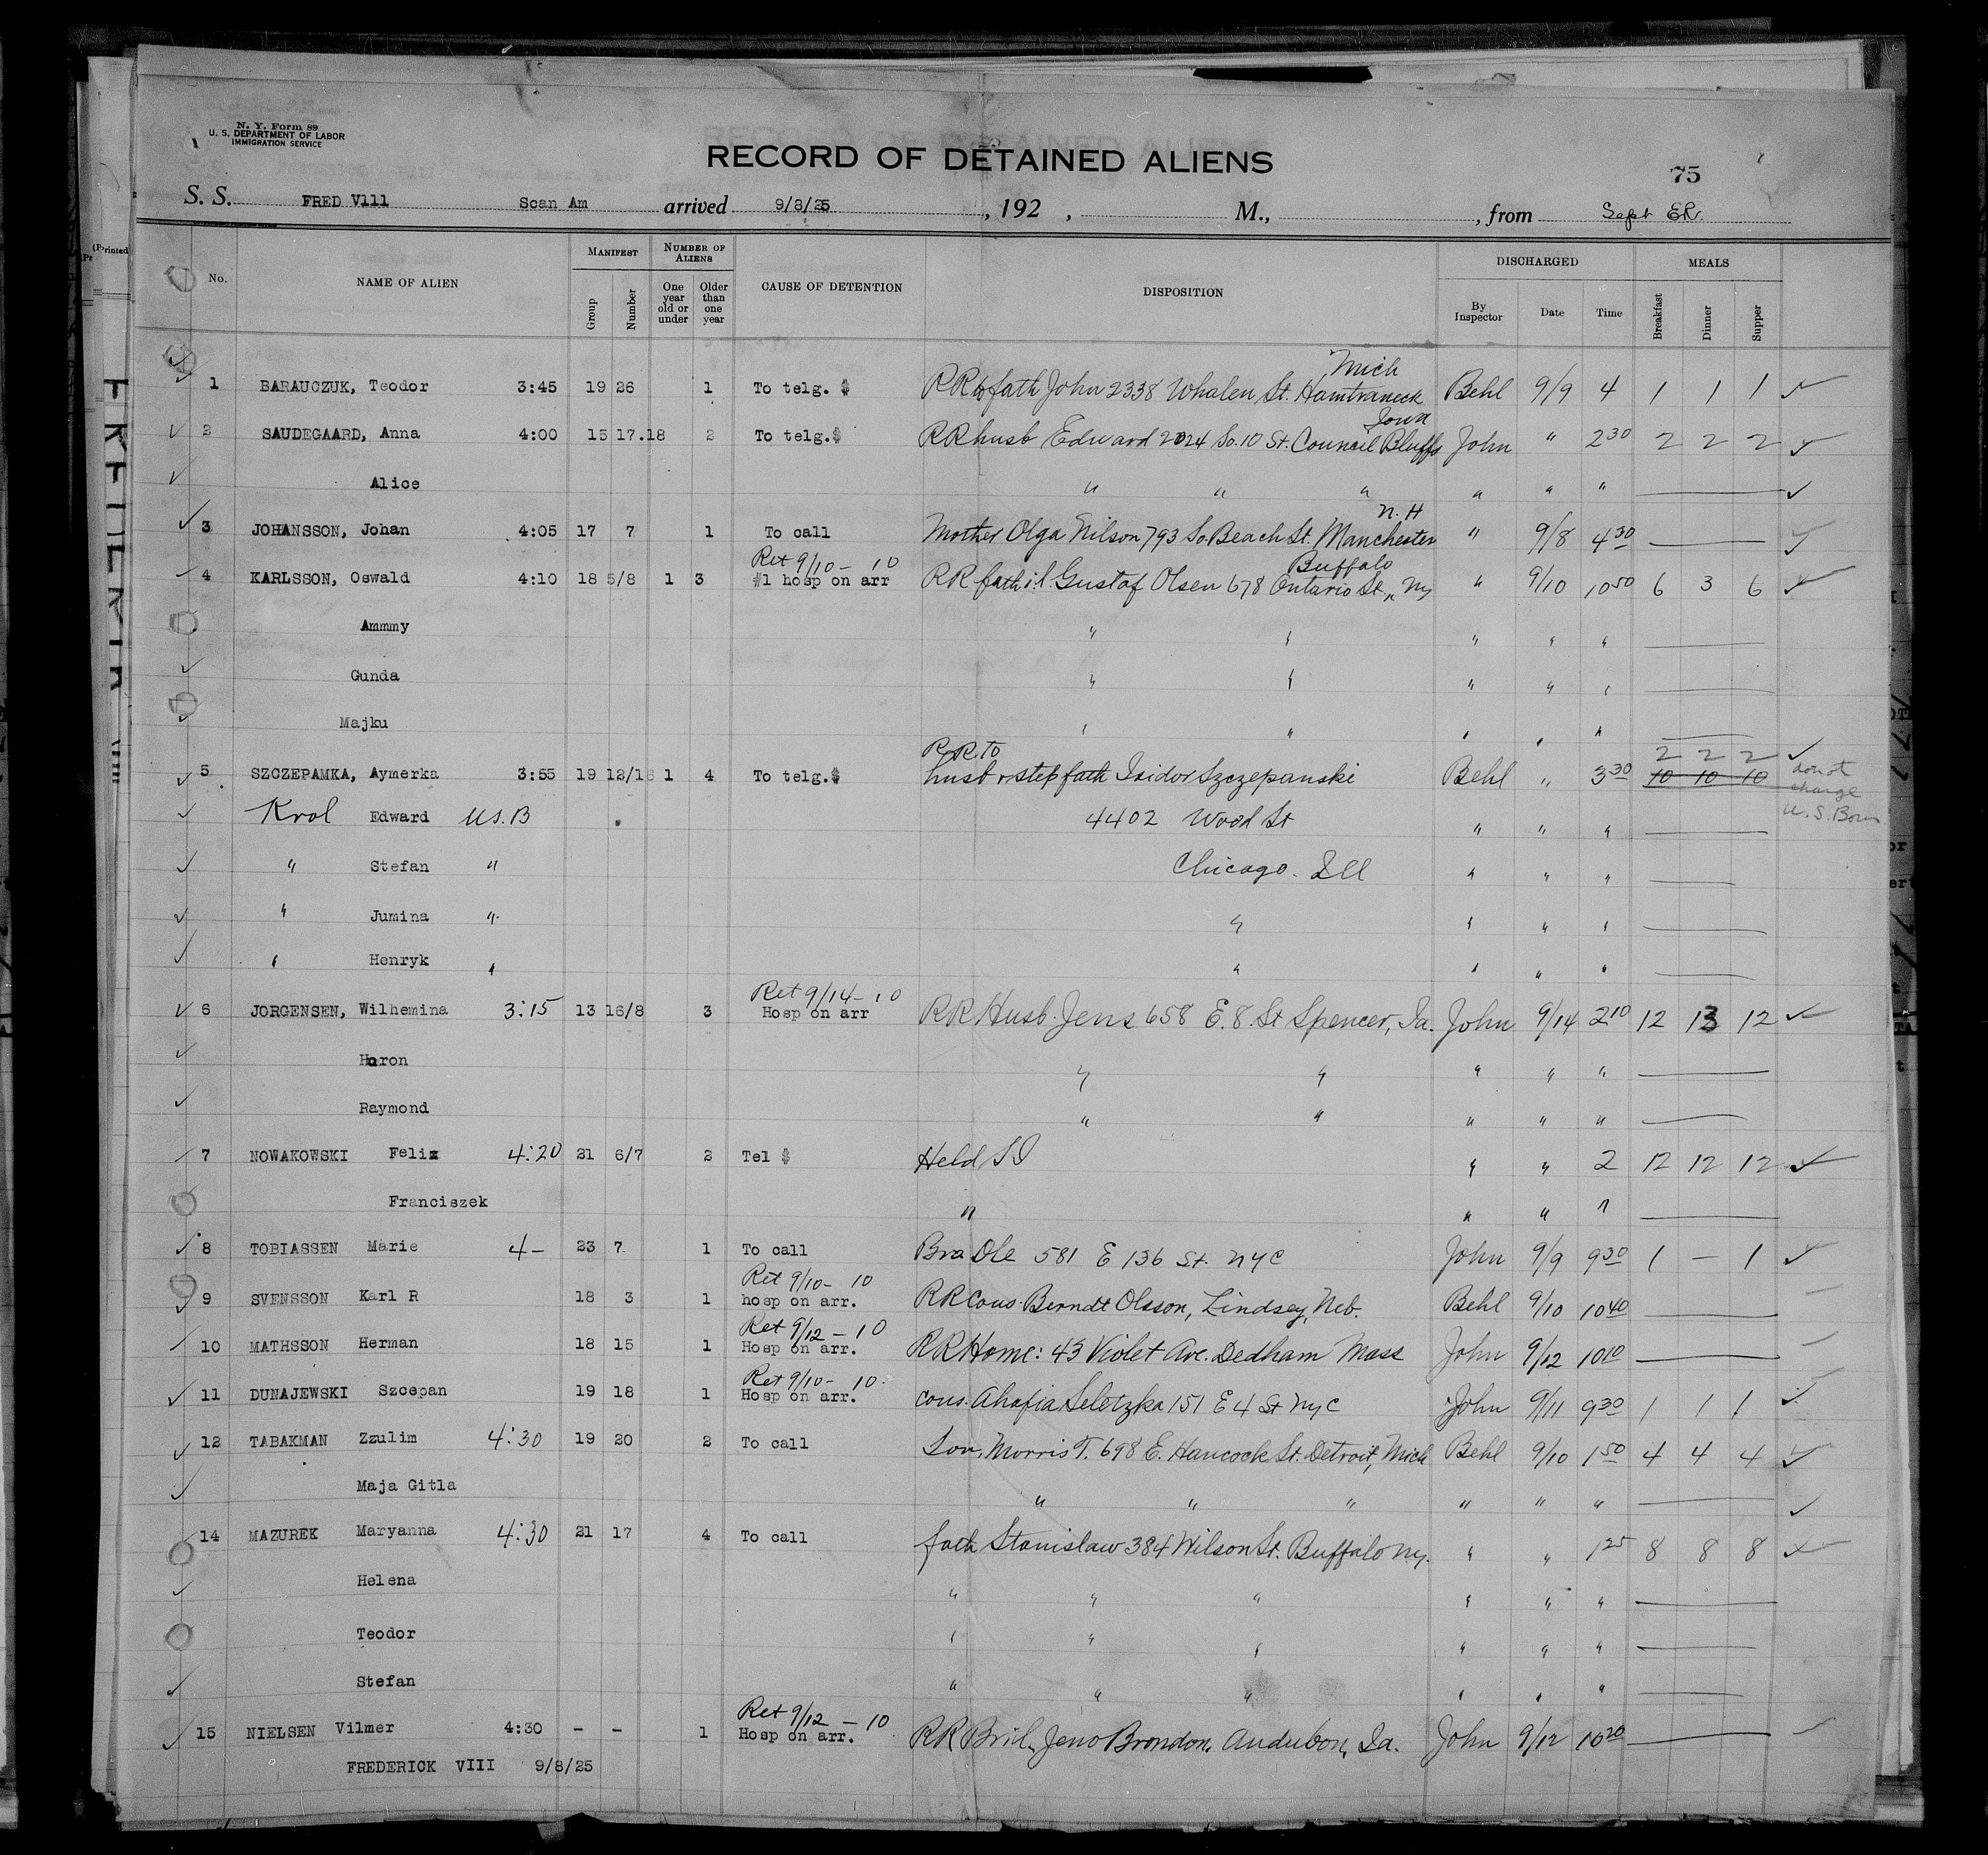 N. Y. Form 89
U. S. DEPARTMENT OF LABOR
IMMIGRATION SERVICE
RECORD OF DETAINED ALIENS
75
S. S. FRED V111 Scan Am arrived 9/8/25, 192 , M., , from Sept ER.
No. NAME OF ALIEN MANIFEST Group Number NUMBER OF ALIENS One year old or under Older than one year CAUSE OF DETENTION DISPOSITION DISCHARGED By Inspector Date Time MEALS Breakfast Dinner Supper
Mich
1 BARAUCZUK, Teodor 3:45 19 26 1 To telg. $ RR to fath John 2338 Whalen St. Hamtramck Behl 9/9 4 1 1 1
Iowa
2 SAUDEGAARD, Anna 4:00 15 17.18 2 To telg.$ RR husb Edward 2024 So. 10 St. Council Bluffs John " 2 30 2 2 2
Alice " " " " " "
N. H
3 JOHANSSON, Johan 4:05 17 7 1 To call Mother Olga Nilson 793 So. Beach St. Manchester " 9/8 4 30
Ret 9/10 - 10 Buffalo
4 KARLSSON, Oswald 4:10 18 5/8 1 3 #1 hosp on arr RR fath i.l Gustaf Olsen 678 Ontario St., NY " 9/10 10 50 6 3 6
Ammmy " " " " "
Gunda " " " " "
Majku " " " " "
R.R. to 2 2 2
5 SZCZEPAMKA, Aymerka 3:55 19 12/16 1 4 To telg.$ husb & stepfath Isidor Szczepanski Behl " 3 30 10 10 10 do not charge U.S. Born
Krol Edward U.S.B 4402 Wood St " " "
" Stefan " Chicago. Ill " " "
" Jumina " " " " "
" Henryk " " " " "
Ret 9/14 - 10
6 JORGENSEN, Wilhemina 3:15 13 16/8 3 Hosp on arr RR Husb. Jens 658 E. 8. St Spencer, Ia. John 9/14 2 10 12 13 12
Haron " " " " "
Raymond " " " " "
7 NOWAKOWSKI Felix 4:20 21 6/7 2 Tel $ Held SI " " 2 12 12 12
Franciszek " " " "
8 TOBIASSEN Marie 4- 23 7 1 To call Bro Ole 581 E 136 St. NYC John 9/9 9 30 1 - 1
Ret 9/10 - 10
9 SVENSSON Karl R 18 3 1 hosp on arr. RR Cous. Berndt Olsson, Lindsey, Neb. Behl 9/10 10 40
Ret 9/12 - 10
10 MATHSSON Herman 18 15 1 Hosp on arr. RR Home: 43 Violet Ave. Dedham Mass John 9/12 10 10
Ret 9/10 - 10
11 DUNAJEWSKI Szcepan 19 18 1 Hosp on arr. cous. Ahafia Seletzka 151 E 4 St NYC John 9/11 9 30 1 1 1
12 TABAKMAN Zzulim 4:30 19 20 2 To call Son, Morris T. 698 E. Hancock St. Detroit, Mich Behl 9/10 1 50 4 4 4
Maja Gitla " " " " " "
14 MAZUREK Maryanna 4:30 21 17 4 To call fath Stanislaw 384 Wilson St. Buffalo NY. " " 1 25 8 8 8
Helena " " " " " "
Teodor " " " " " "
Stefan " " " " " "
Ret 9/12 - 10
15 NIELSEN Vilmer 4:30 - - 1 Hosp on arr. RR Br il, Jeno Brondon, Audubon, Ia. John 9/12 10 20
FREDERICK VIII 9/8/25